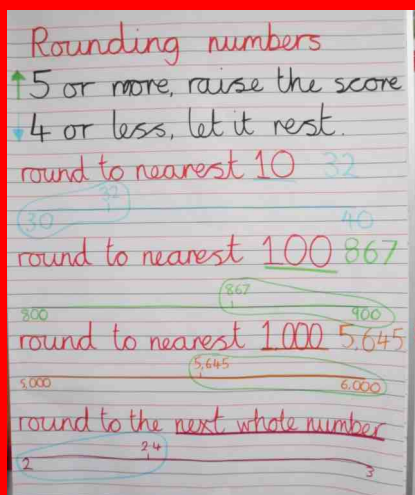 Rounding numbers
↑5 or more, raise the score
↓4 or less, let it rest.
round to nearest 10 32
32
30 40
round to nearest 100 867
867
800 900
round to nearest 1.000 5,645
5,645
5,000 6.000
round to the next whole number
2.4
2 3